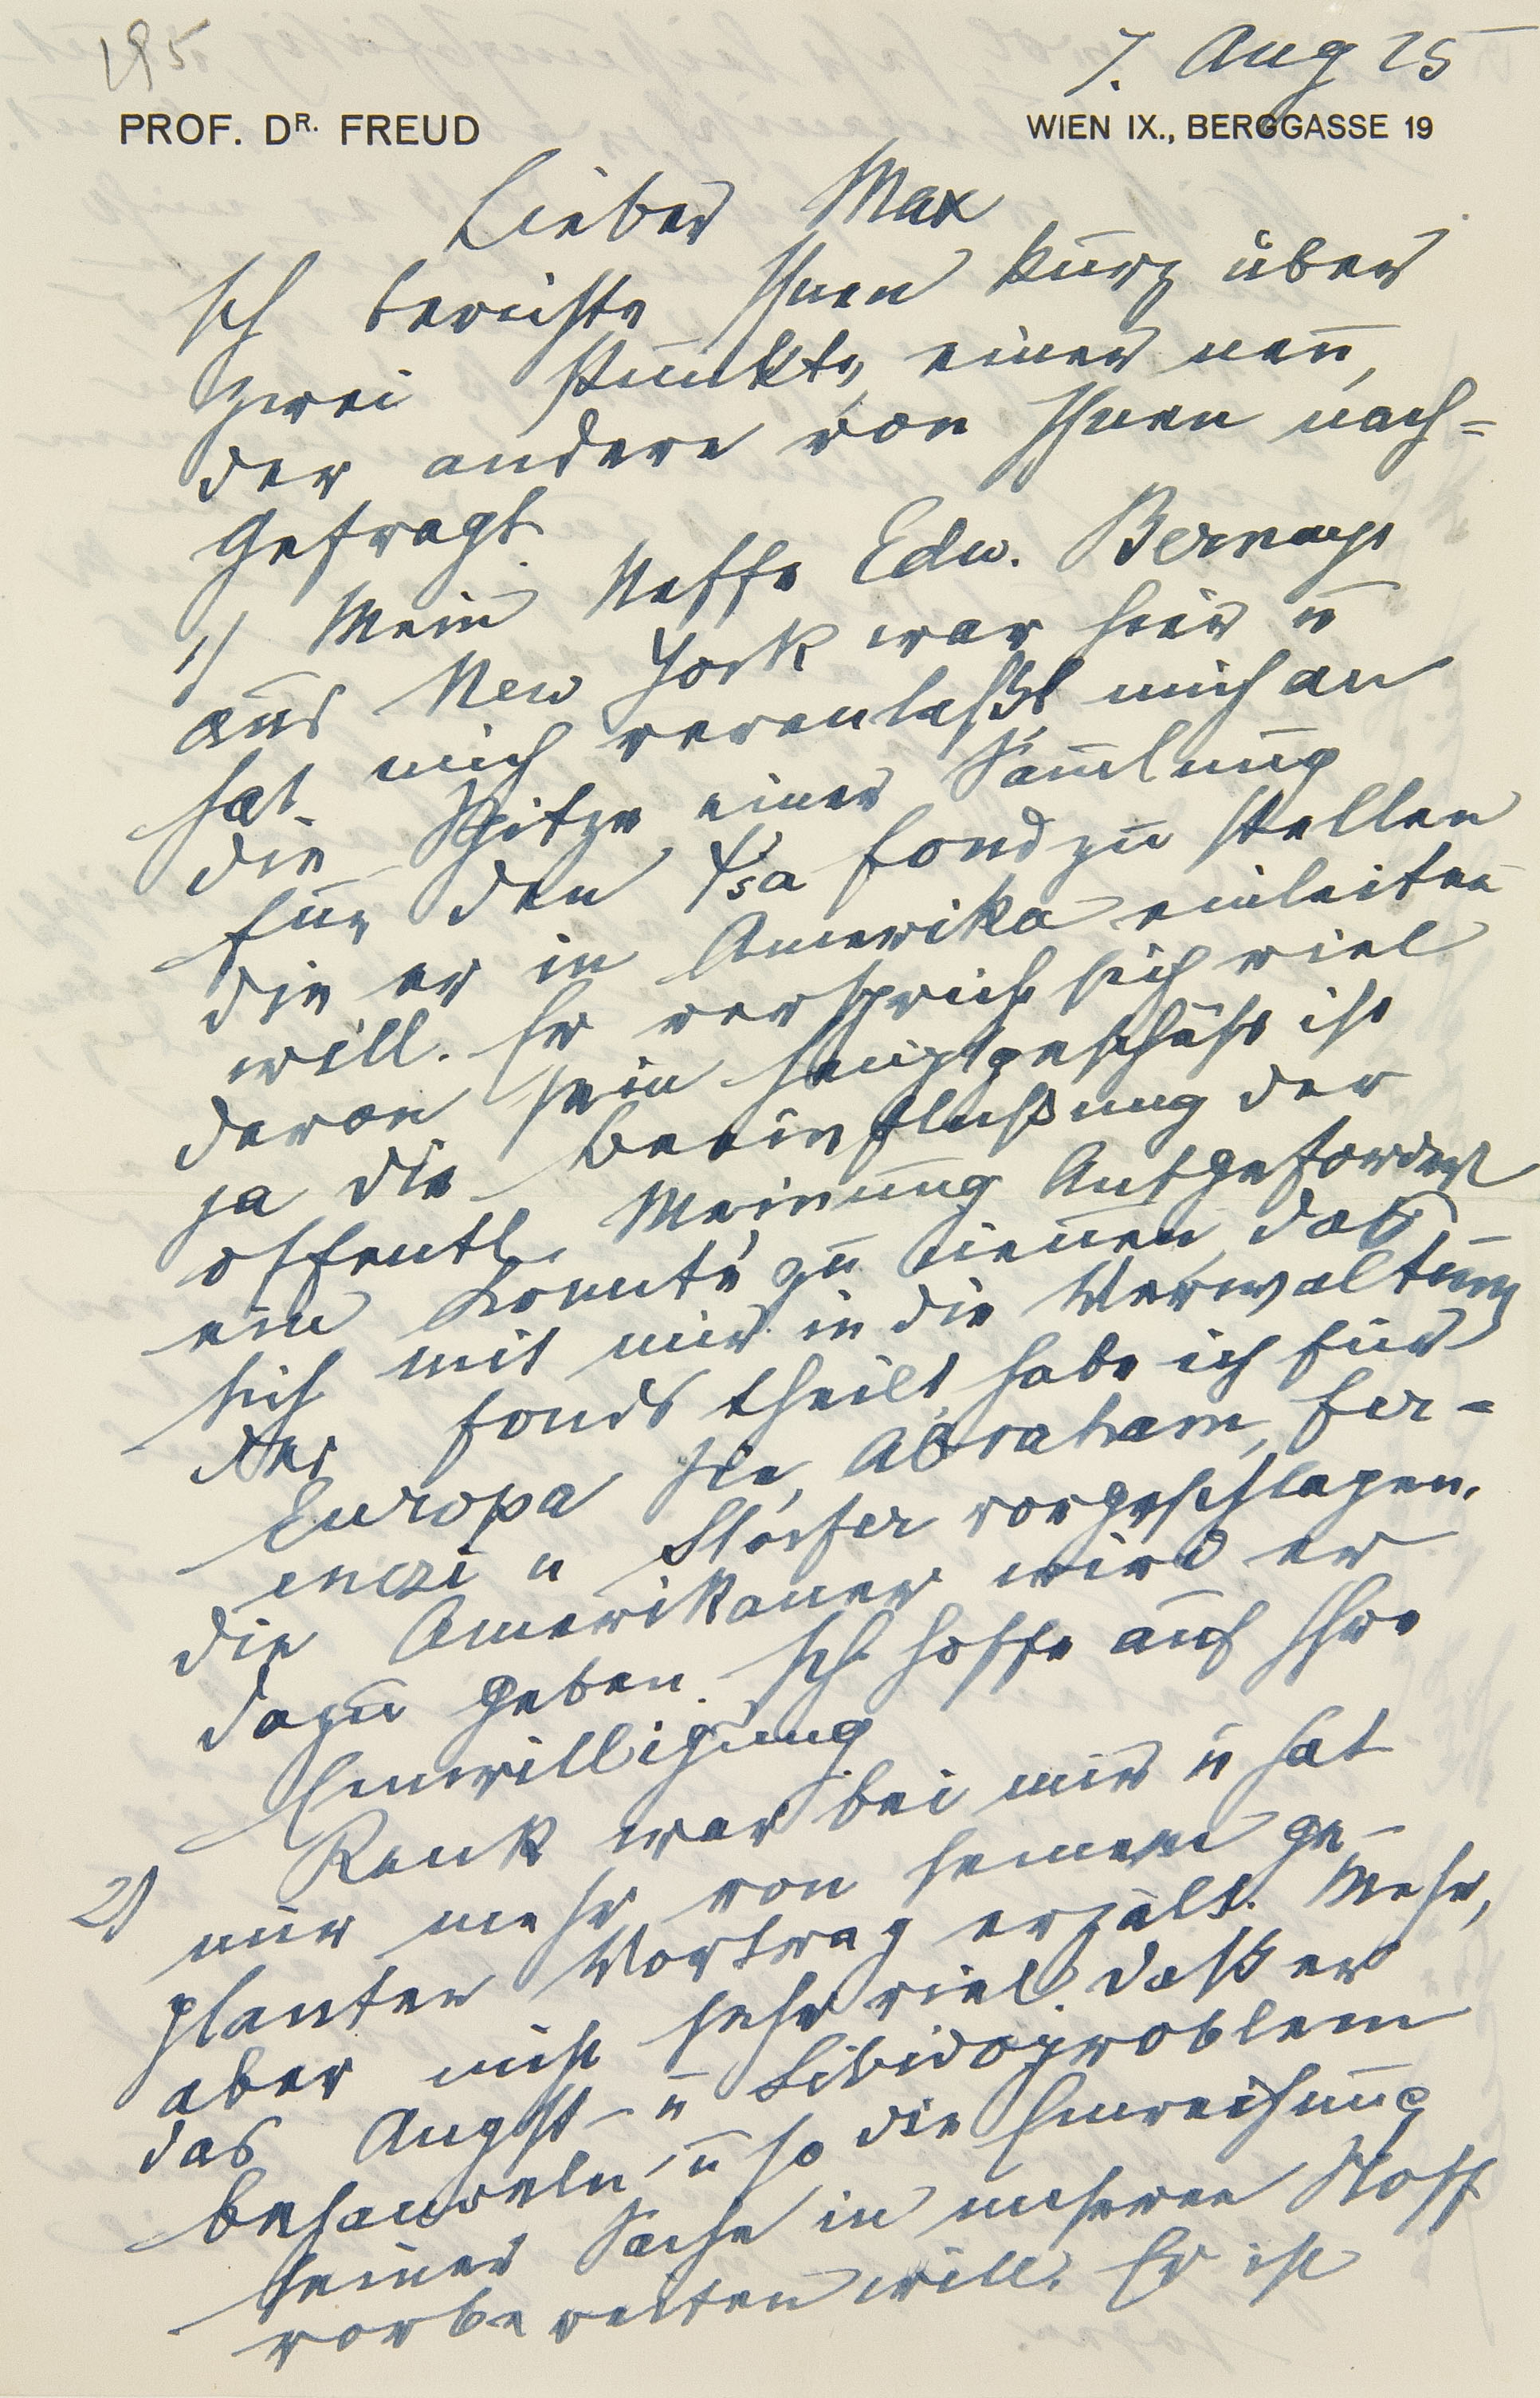 195
7. Aug 25
PROF. DR. FREUD
WIEN IX., BERGGASSE 19
Lieber Max
Ich berichte Ihnen kurz über
zwei Punkte, einer neu,
der andere von Ihnen nach-
gefragt.
1) Mein Neffe Edw. Bernays
aus New York war hier u
hat mich veranlaßt mich an
die Spitze einer Sammlung
für den ΨA fond zu stellen
die er in Amerika einleiten
will. Er verspricht sich viel
davon sein Hauptgeschäft ist
ja die Beeinflußung der
öffentl. Meinung Aufgefordert
ein Komité zu nennen, daß
sich mit mir in die Verwaltung
des Fonds theilt, habe ich für
Europa Sie, Abraham, Fer-
enczi u Storfer vorgeschlagen.
die Amerikaner wird er
dazu geben. Ich hoffe auf Ihre
Einwilligung.
2) Rank war bei mir u hat
mir mehr von seinem ge-
planten Vortrag erzält. Mehr,
aber nicht sehr viel. daß er
das Angst- u Libidoproblem
behandeln, u so die Einreihung
seiner Sache in unseren Stoff
vorbereiten will. Er ist